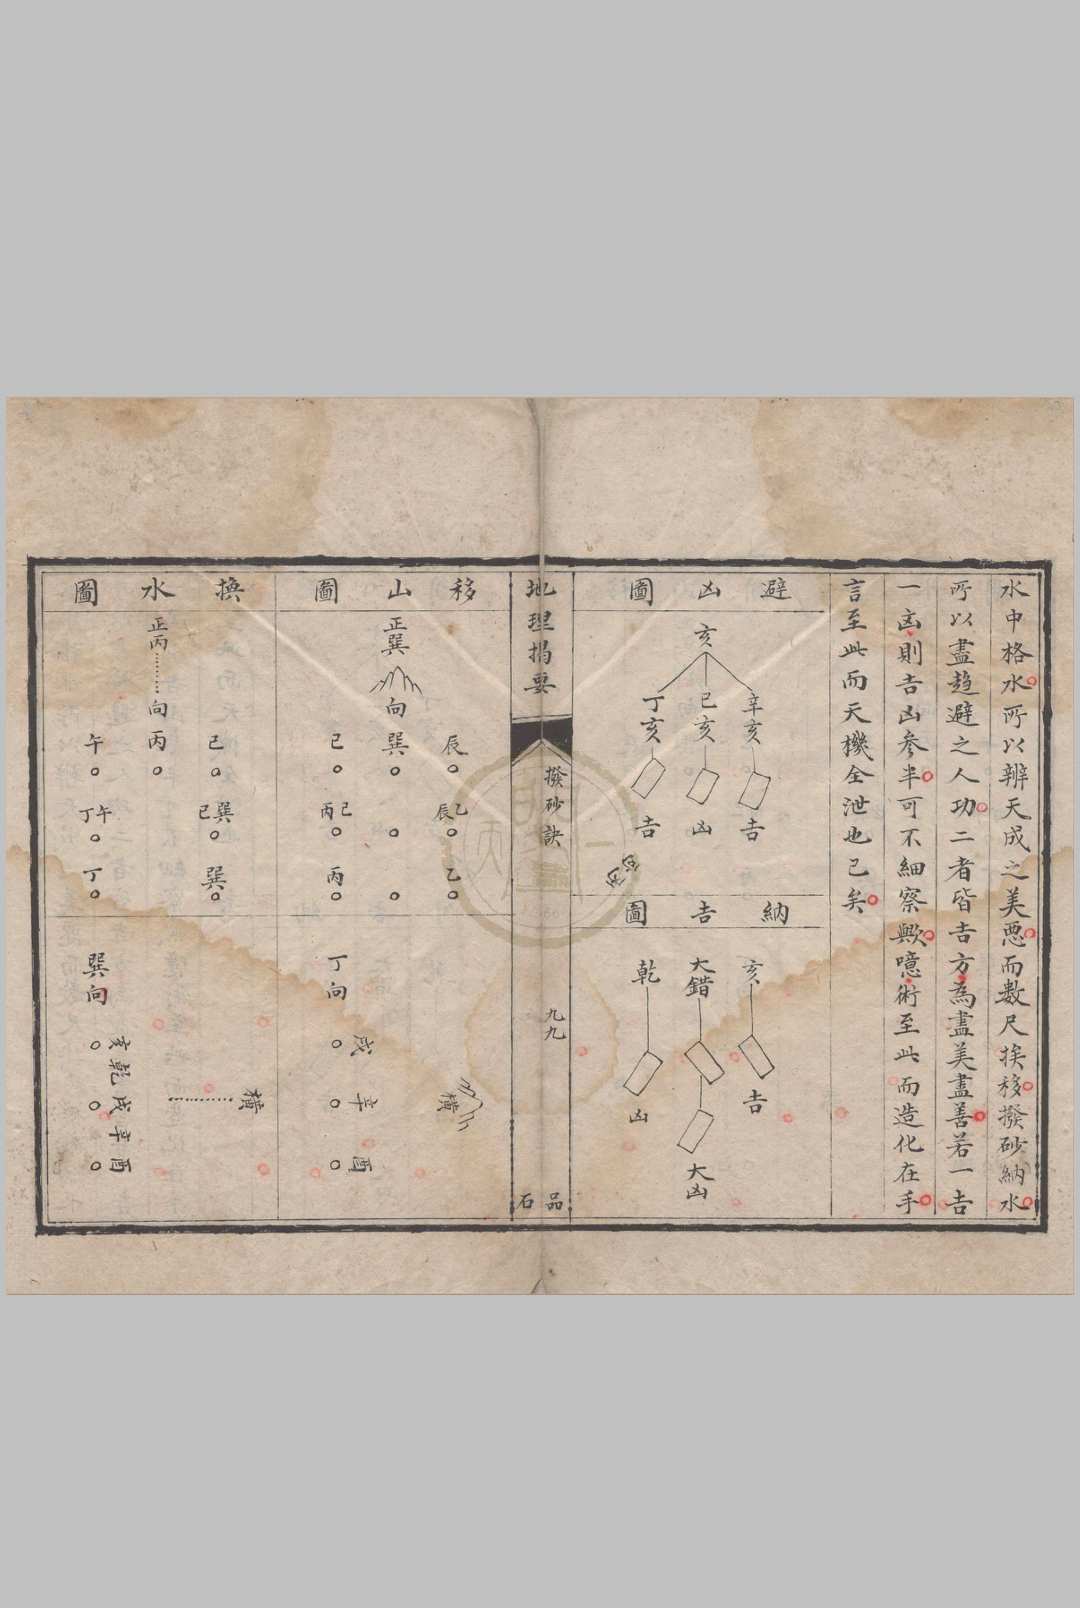 水中格水所以辨天成之美惡而數尺挨移撥砂納水
所以盡趨避之人功二者皆吉方為盡美盡善若一吉
一凶則吉凶參半可不細察歟噫術至此而造化在手
言至此而天機全泄也已矣
避凶圖
亥
辛亥
吉
已亥
凶
丁亥
吉
納吉圖
亥
吉
大錯
大凶
乾
凶
地理揭要
撥砂訣
九九
石品
移山圖
正巽
向
巽
辰
乙辰
乙
巳
巳丙
丙
丁向
橫
戌
辛
酉
換水圖
正丙
向
丙
巳
巽巳
巽
午
午丁
丁
巽向
橫
亥乾戌辛酉